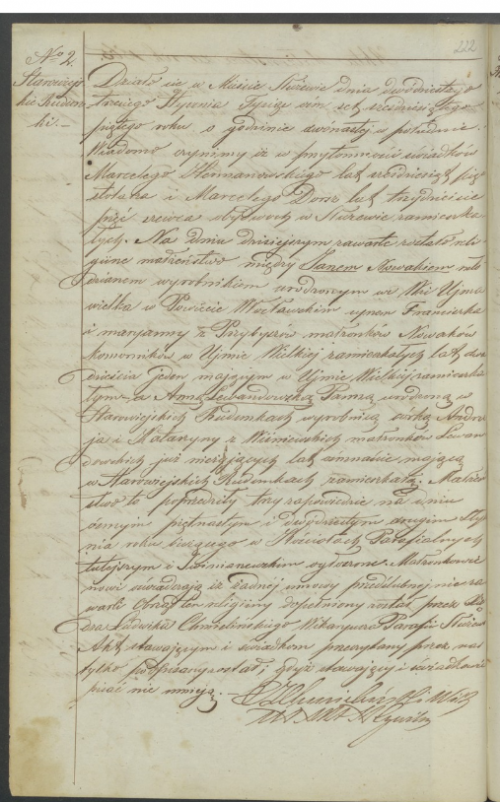 222
No 2.
Starowiejs
kie Rudun
ki. —
Działo się w Mieście Służewie dnia dwudziestego
trzeciego Stycznia Tysiąc ośm set sześćdziesiątego
piątego roku o godzinie dwónastej w południe.
Wiadomo czynimy iż w przytomności świadków
Marcelego lat sześćdziesiąt pięć
stolarza i Marcelego Dorsz lat trzydzieście
pięć szewca obydwoch w Służewie zamieszka
łych. Na dniu dzisiejszym zawarte zostało reli
gijne małżeństwo między Janem Nowakiem mło
dzianem wyrobnikiem urodzonym we Wsi Ujma
wielka w Powiecie Włocławskim synem Franciszka
i Maryanny z Przybyszów małżonków Nowaków
komorników w Ujmie Wielkiej zamieszkałych lat dwa
dzieścia jeden mającym w Ujmie Wielkiej zamieszka
łym — a Anną Lewandowską Panną urodzoną w
Starowiejskich Rudunkach wyrobnicą córką Andrze
ja i Katarzyny z Wiśniewskich małżonków Lewan
dowskich już nieżyjących lat mającą
w Starowiejskich Rudunkach zamieszkałą. Małżeń
stwo to poprzedziły trzy zapowiedzie na dniu
ósmym piętnastym i dwudziestym drugim Sty
cznia roku bieżącego w Kościołach Parafialnych
tutejszym i ogłoszone. Małżonkowie
nowi oświadczają iż żadnej umowy przedślubnej nie za
warli Obrzęd ten religijny dopełniony został przez Xię
dza Ludwika Chmielińskiego Wikaryusza Parafii Służewo
Akt stawającym i świadkom przeczytany przez nas
tylko podpisany został, gdyż stawający i świadkowie
pisać nie umieją. — X. L. Chmieliński Wik.